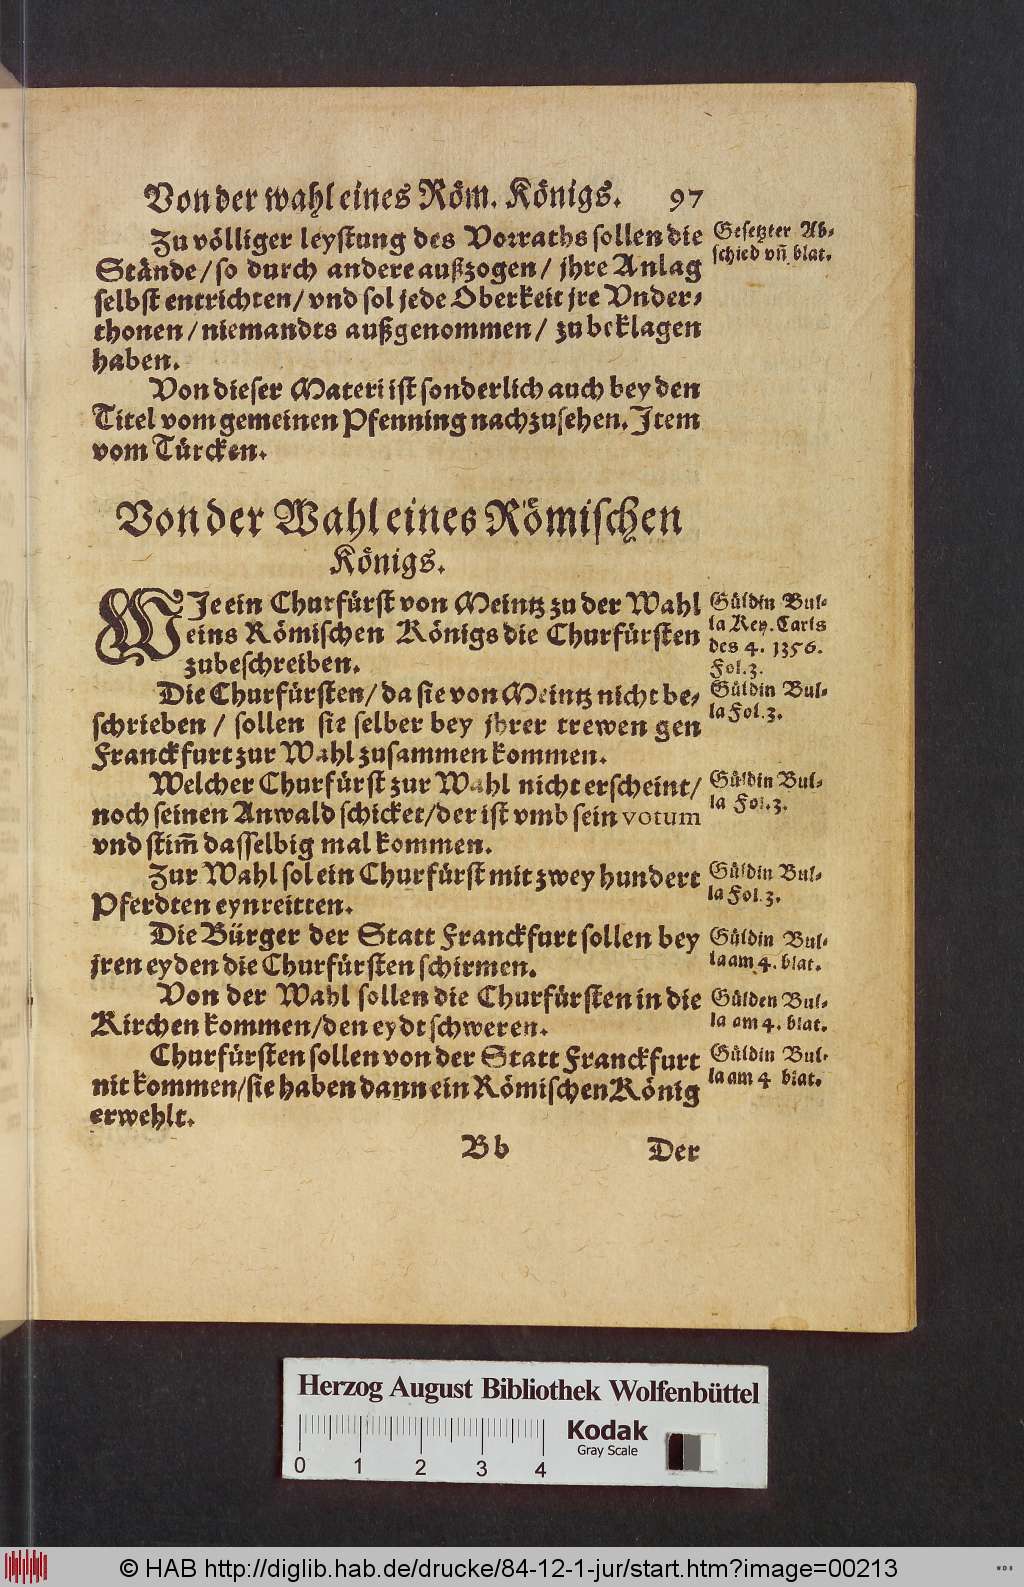 Von der wahl eines Röm. Königs. 97
Zu völliger leystung des Vorraths sollen die
Stände/ so durch andere außzogen/ jhre Anlag
selbst entrichten/ vnd sol jede Oberkeit jre Vnder-
thonen/ niemandts außgenommen/ zubeklagen
haben.
Gesetzter Ab-
schied vñ blat.
Von dieser Materi ist sonderlich auch bey den
Titel vom gemeinen Pfenning nachzusehen. Item
vom Türcken.
Von der Wahl eines Römischen
Königs.
WJe ein Churfürst von Meintz zu der Wahl
eins Römischen Königs die Churfürsten
zubeschreiben.
Güldin Bul-
la Key. Carls
des 4. 1356.
Fol. 3.
Die Churfürsten/ da sie von Meintz nicht be-
schrieben / sollen sie selber bey jhrer trewen gen
Franckfurt zur Wahl zusammen kommen.
Güldin Bul-
la Fol. 3.
Welcher Churfürst zur Wahl nicht erscheint/
noch seinen Anwald schicket/ der ist vmb sein votum
vnd stim̃ dasselbig mal kommen.
Güldin Bul-
la Fol. 3.
Zur Wahl sol ein Churfürst mit zwey hundert
Pferdten eynreitten.
Güldin Bul-
la Fol. 3.
Die Bürger der Statt Franckfurt sollen bey
jren eyden die Churfürsten schirmen.
Güldin Bul-
la am 4. blat.
Von der Wahl sollen die Churfürsten in die
Kirchen kommen/ den eydt schweren.
Gülden Bul-
la am 4. blat.
Churfürsten sollen von der Statt Franckfurt
nit kommen/ sie haben dann ein Römischen König
erwehlt.
Güldin Bul-
la am 4 blat.
Bb Der
Herzog August Bibliothek Wolfenbüttel
Kodak
Gray Scale
0 1 2 3 4
© HAB http://diglib.hab.de/drucke/84-12-1-jur/start.htm?image=00213